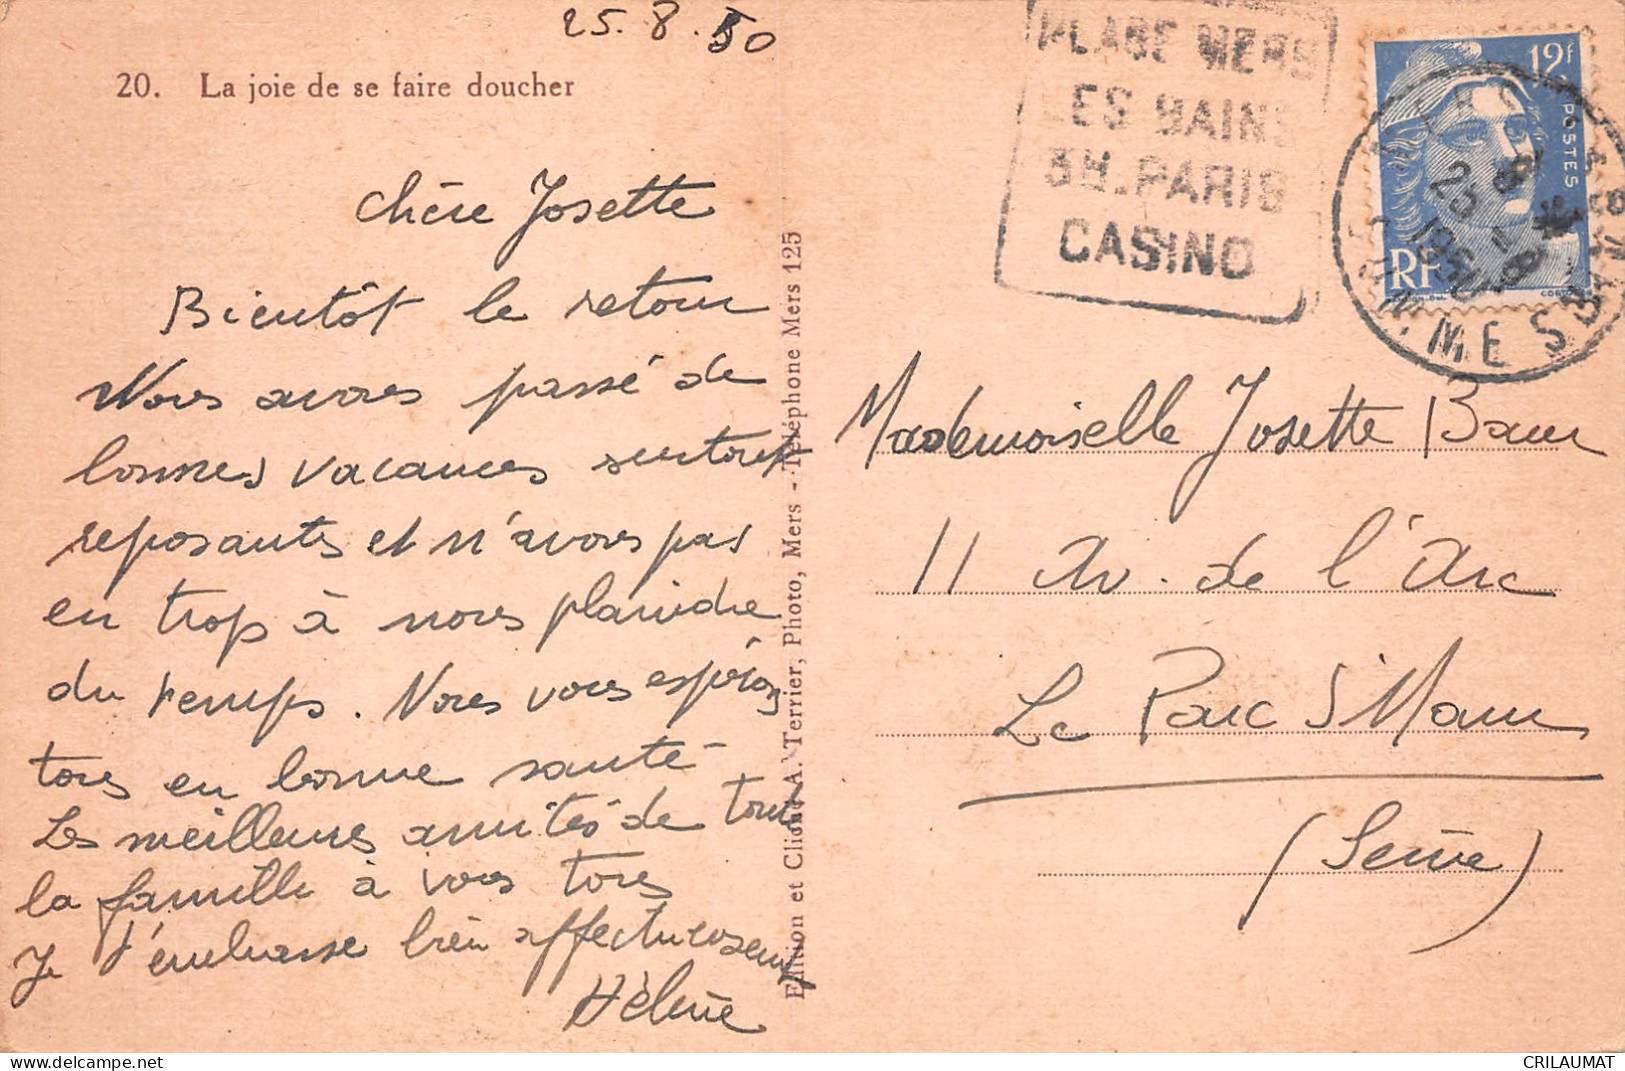 25.8.50
20. La joie de se faire doucher
PLAGE MERS
LES BAINS
3H.PARIS
CASINO
12f
POSTES
RF
25
1950
MERS
SOMME
Chère Josette
Bientôt le retour
Nous avons passé de
bonnes vacances surtout
reposantes et n'avons pas
eu trop à nous plaindre
du temps. Nous vous espérons
tous en bonne santé
Les meilleures amitiés de toute
la famille à vous tous
Je t'embrasse bien affectueusement
Hélène
Edition et Cliché A. Terrier, Photo, Mers - Téléphone Mers 125
Mademoiselle Josette Baur
11 Av. de l'Arc
Le Parc St Maur
(Seine)
delcampe.net
CRILAUMAT